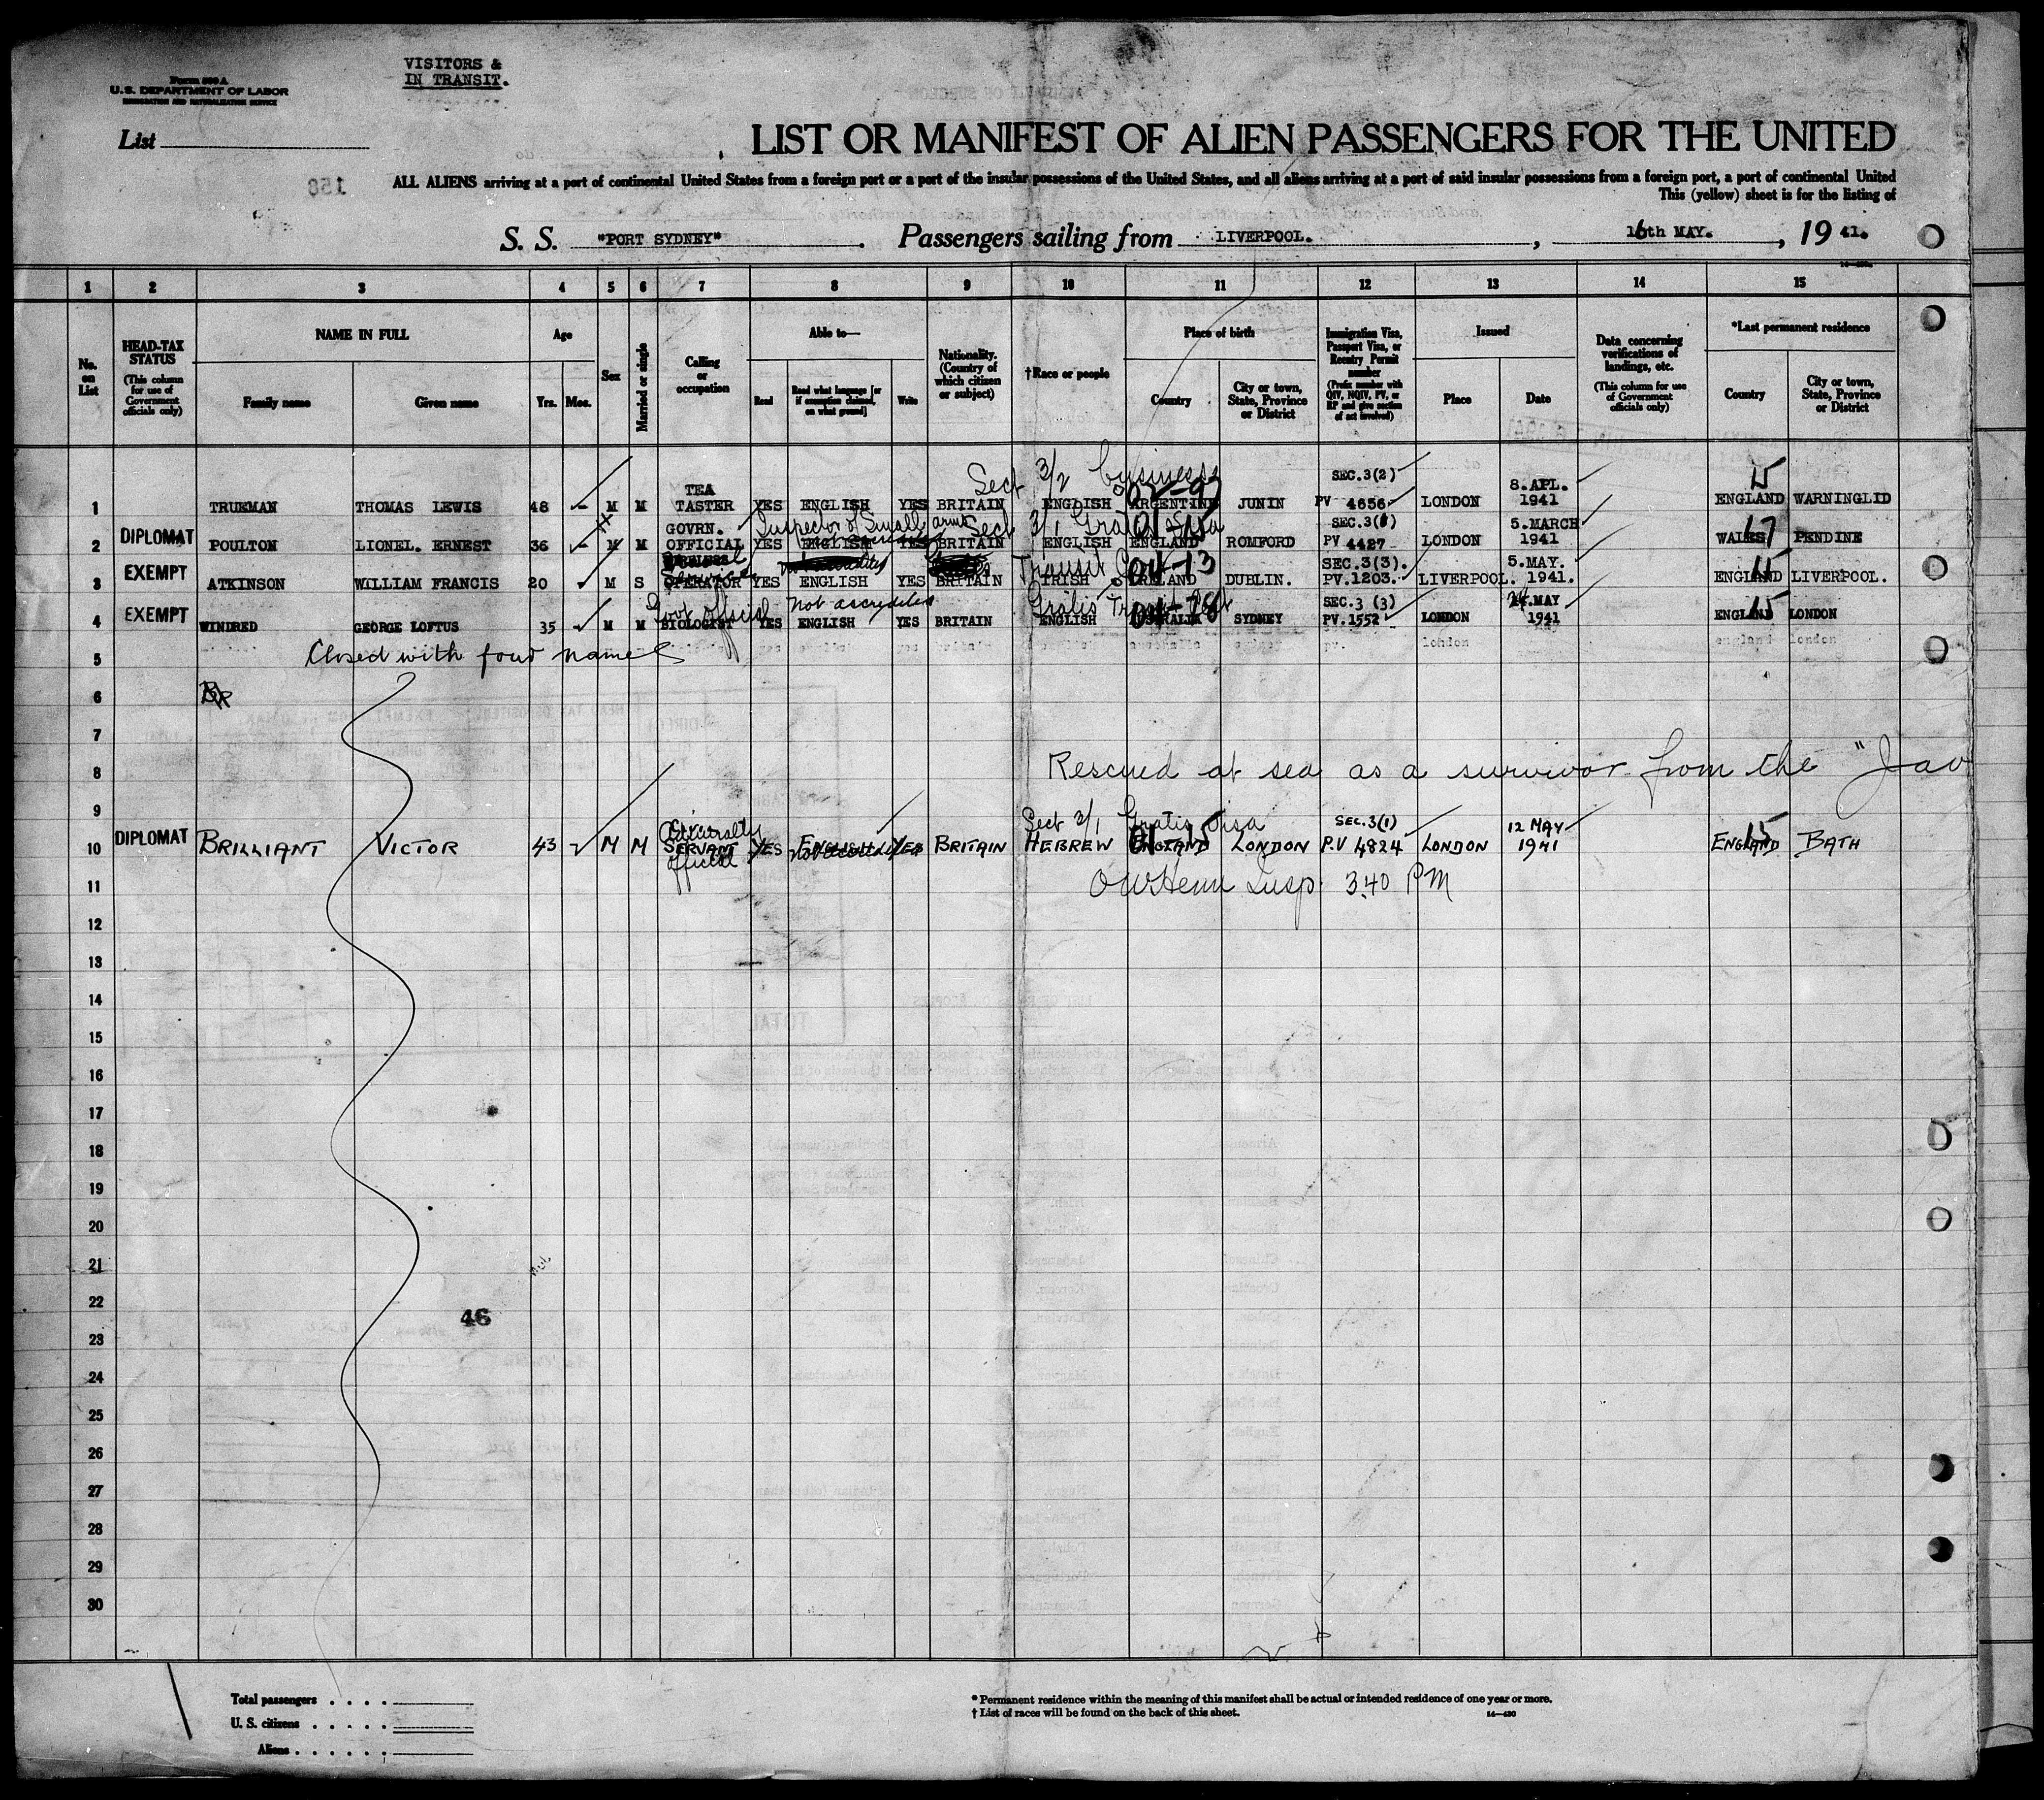 VISITORS &
IN TRANSIT.
Form 500 A
U. S. DEPARTMENT OF LABOR
IMMIGRATION AND NATURALIZATION SERVICE
List
LIST OR MANIFEST OF ALIEN PASSENGERS FOR THE UNITED
150
ALL ALIENS arriving at a port of continental United States from a foreign port or a port of the insular possessions of the United States, and all aliens arriving at a port of said insular possessions from a foreign port, a port of continental United
This (yellow) sheet is for the listing of
S. S. "PORT SYDNEY". Passengers sailing from LIVERPOOL., 16th MAY., 19 41.
1 2 3 4 5 6 7 8 9 10 11 12 13 14 15
No. on List
HEAD-TAX STATUS (This column for use of Government officials only)
NAME IN FULL
Family name Given name
Age
Yrs. Mos.
Sex
Married or single
Calling or occupation
Able to—
Read Read what language [or if exemption claimed, on what ground] Write
Nationality. (Country of which citizen or subject)
†Race or people
Place of birth
Country City or town, State, Province or District
Immigration Visa, Passport Visa, or Reentry Permit number (Prefix number with QIV, NQIV, PV, or RP and give section of act involved)
Issued
Place Date
Data concerning verifications of landings, etc. (This column for use of Government officials only)
*Last permanent residence
Country City or town, State, Province or District
Sect 3/2 business SEC.3(2) 8.APL. 15
1 TRUEMAN THOMAS LEWIS 48 M M TEA TASTER YES ENGLISH YES BRITAIN ENGLISH ARGENTINE JUNIN PV 4656 LONDON 1941 ENGLAND WARNINGLID
Inspector of Small arms Sect 3/1 Gratis Visa 01-15 SEC.3(1) 5.MARCH 17
2 DIPLOMAT POULTON LIONEL. ERNEST 36 M M GOVRN. OFFICIAL YES ENGLISH YES BRITAIN ENGLISH ENGLAND ROMFORD PV 4427 LONDON 1941 WALES PENDINE
Transit 04-13 SEC.3(3). 5.MAY.
3 EXEMPT ATKINSON WILLIAM FRANCIS 20 M S OPERATOR YES ENGLISH YES BRITAIN IRISH IRELAND DUBLIN. PV.1203. LIVERPOOL. 1941. ENGLAND LIVERPOOL.
Govt official Not accredited Gratis Transit SEC.3 (3) MAY 15
4 EXEMPT WINDRED GEORGE LOFTUS 35 M M BIOLOGIST YES ENGLISH YES BRITAIN ENGLISH AUSTRALIA SYDNEY PV.1552 LONDON 1941 ENGLAND LONDON
5 Closed with four names london england london
6 BR
7
8 Rescued at sea as a survivor from the "Jav
9
Sect 3/1 Gratis Visa 01-15 SEC.3(1) 12 MAY 15
10 DIPLOMAT BRILLIANT VICTOR 43 M M CIVIL SERVANT Admiralty Official YES ENGLISH YES BRITAIN HEBREW ENGLAND LONDON P.V 4824 LONDON 1941 ENGLAND BATH
11 Insp. 3.40 PM
12
13
14
15
16
17
18
19
20
21
22 46
23
24
25
26
27
28
29
30
Total passengers
U. S. citizens
Aliens
* Permanent residence within the meaning of this manifest shall be actual or intended residence of one year or more.
† List of races will be found on the back of this sheet.
14—430